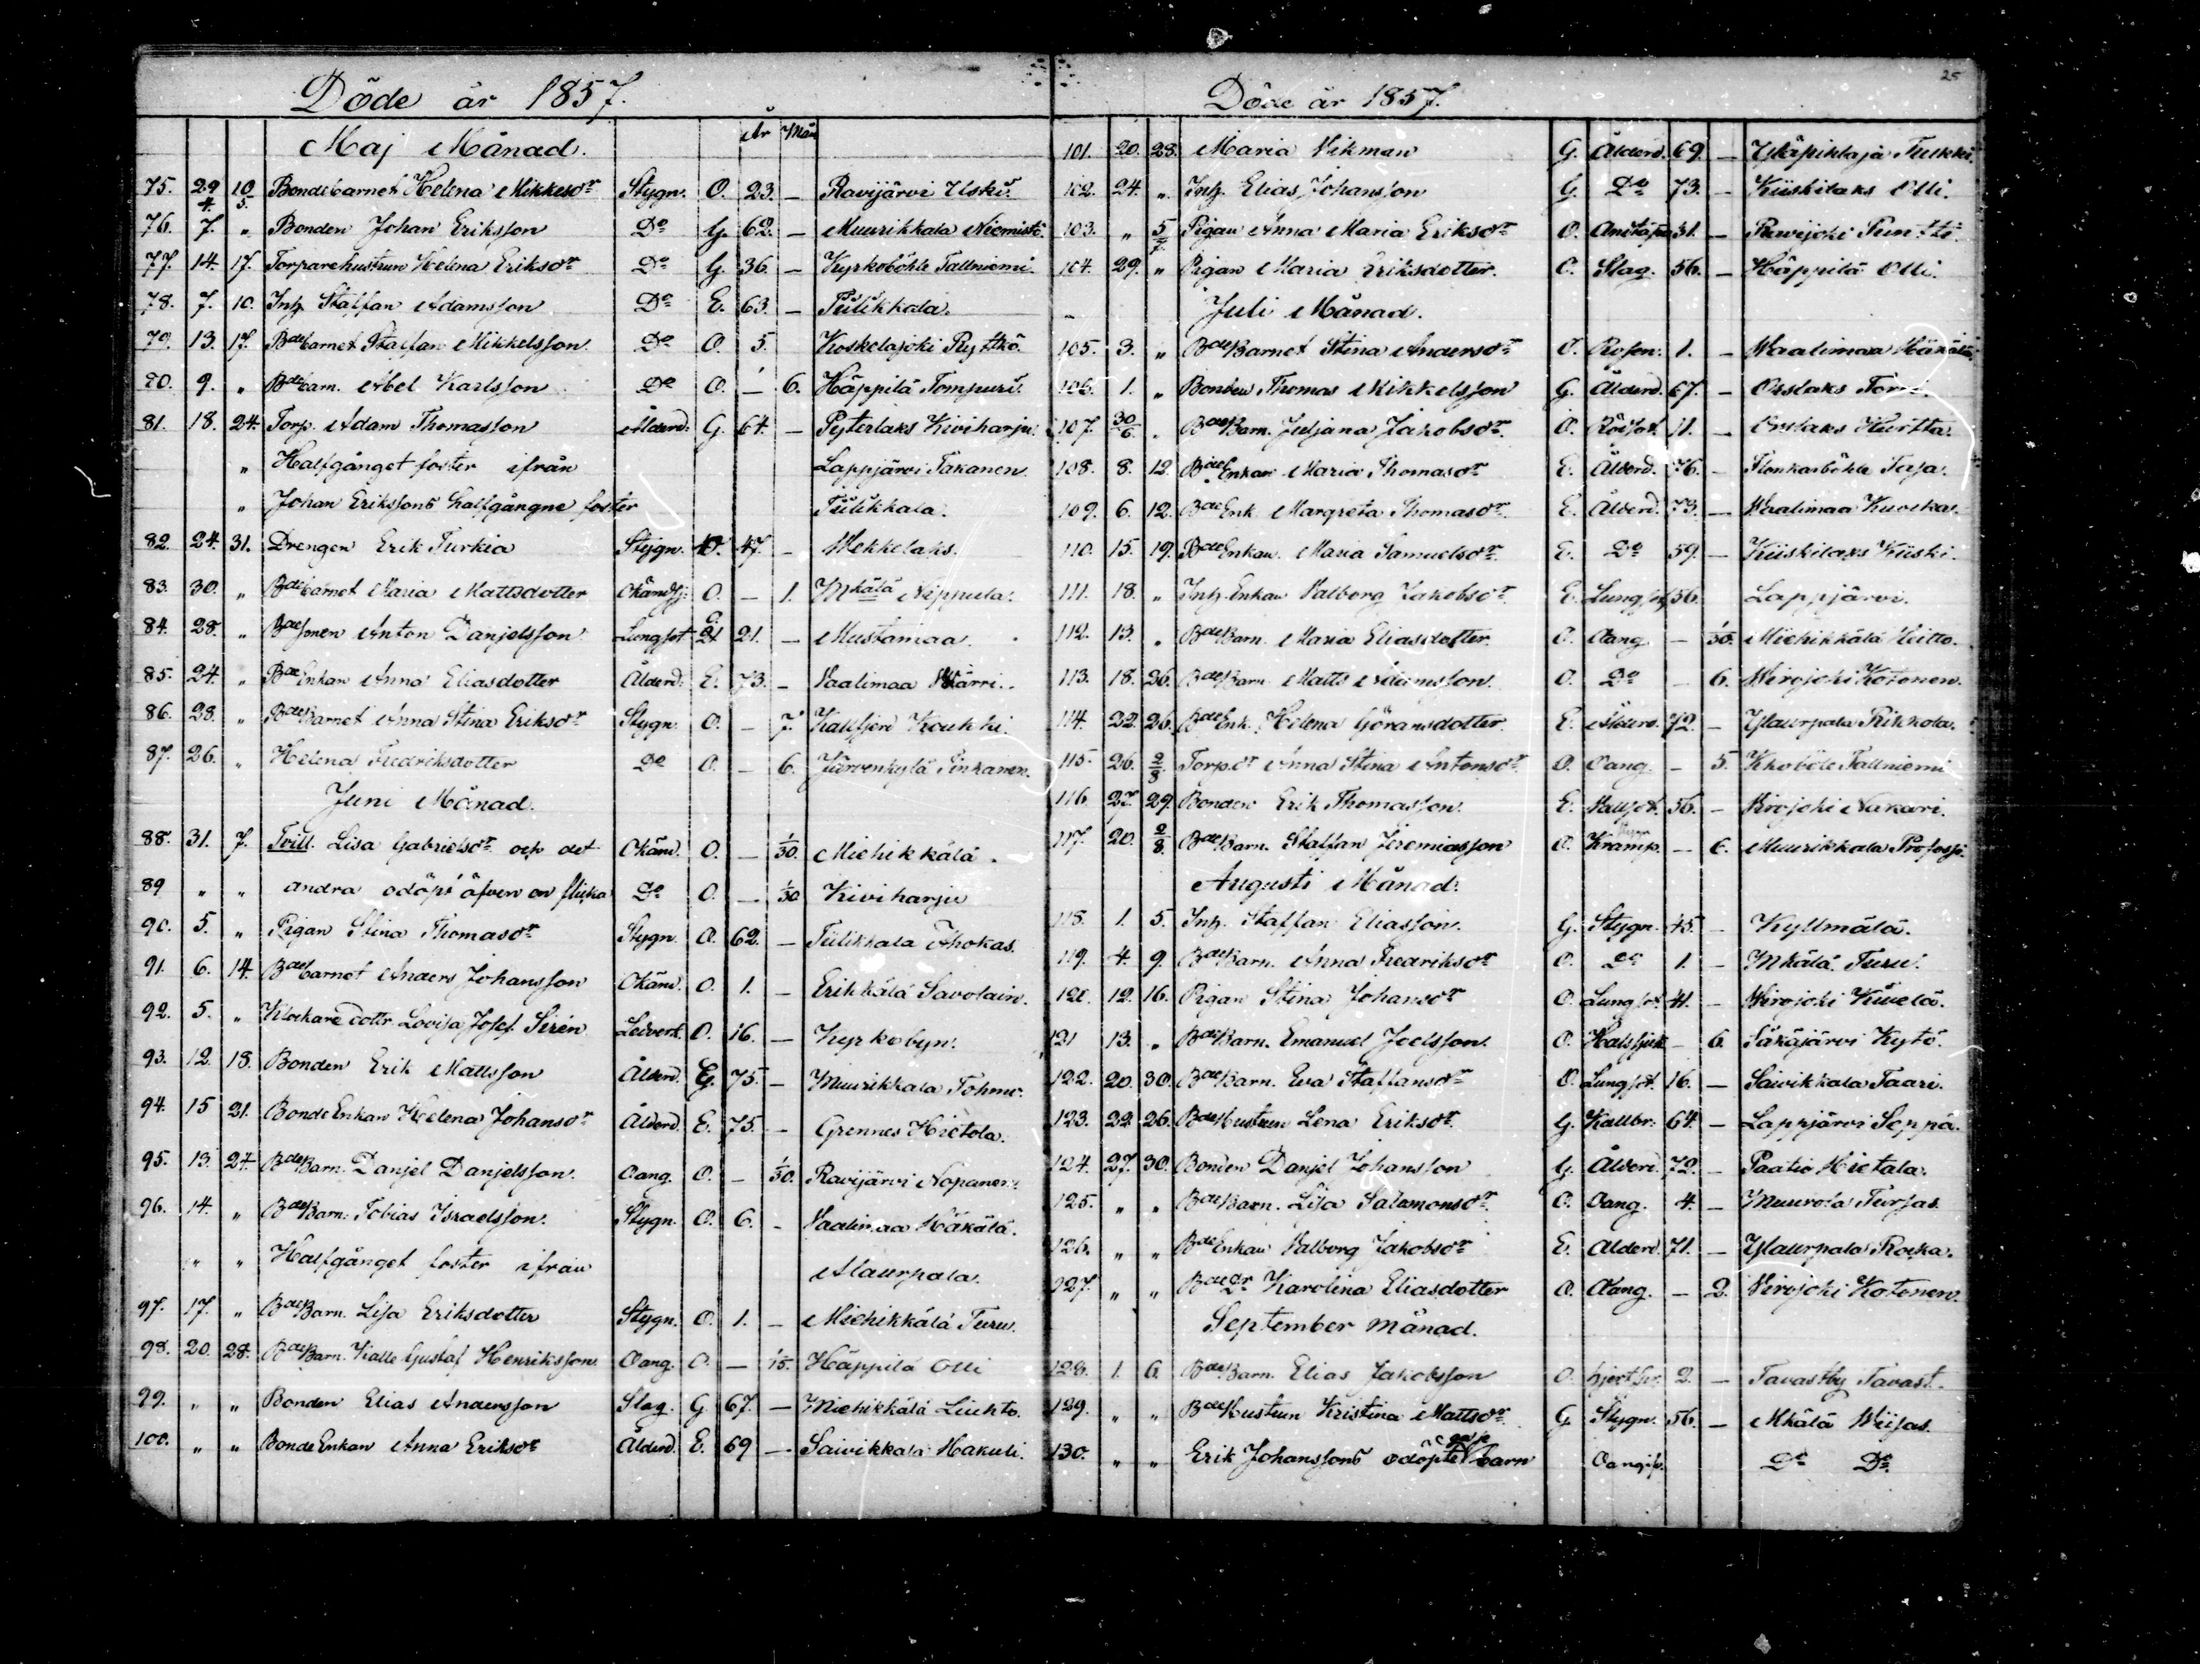 Döde år 1857.
År Mån
Maj Månad.
75. 29/4. 10/5. Bondebarnet Helena Mikkelsdr Stygn. O. 23. – Ravijärvi Uski.
76. 7. " Bonden Johan Eriksson Do G. 62. – Muurikkala Niemistö.
77. 14. 17. Torparehustrun Helena Eriksdr Do G. 36. – Kyrkoböhle Tallniemi
78. 7. 10. Inh. Staffan Adamsson Do E. 63. – Tülikkala.
79. 13. 17. Bdebarnet Staffan Mikkelsson. Do O. 5. Koskelajoki Pyttkö.
80. 9. " Bdebarn. Abel Karlsson Do O. – 6. Häppilä Tompuri.
81. 18. 24. Torp. Adam Thomasson Ålderd. G. 64. – Pyterlaks Kiviharju.
" Halfgånget foster ifrån Lappjärvi Takanen.
" Johan Erikssons halfgångne foster Tülikkala.
82. 24. 31. Drengen Erik Turkia Stygn. O. 47. – Mekkelaks.
83. 30. " Bdebarnet Maria Mattsdotter Okänd sj. O. – 1. Mkälä Nippula.
84. 28. " Bdesonen Anton Danjelsson Lungsot O. 21. – Mustamaa.
85. 24. " BdeEnkan Anna Eliasdotter Ålderd. E. 73. – Vaalimaa Skärri.
86. 28. " BdeBarnet Anna Stina Eriksdr Stygn. O. – 7. Kallfjerd Koukki.
87. 26. " Helena Fredriksdotter Do O. – 6. Järvenkylä Pinkanen.
Juni Månad.
88. 31. 7. Tvill. Lisa Gabrielsdr och det Okänd. O. – 1/30. Miehikkälä.
89 " " andra odöpt äfven en flicka Do O. – 1/30 Kiviharju
90. 5. " Pigan Stina Thomasdr Stygn. O. 62. – Tülikkala Thokas.
91. 6. 14. Bdebarnet Anders Johansson Okänd. O. 1. – Erikkälä Savolain.
92. 5. " Klockare dottr. Lovisa Josef. Sirén Ledverk O. 16. – Kyrkobyn.
93. 12. 18. Bonden Erik Mattsson Ålderd. G. 75. – Muurikkala Tohmo.
94. 15 21. BondeEnkan Helena Johansdr Ålderd. E. 75. – Grennes Hietola.
95. 13. 24. BdeBarn. Danjel Danjelsson. Oang. O. – 1/30. Ravijärvi Nopanen.
96. 14. " BdeBarn. Tobias Israelsson. Stygn. O. 6. – Vaalimaa Häkälä.
" " Halfgånget foster ifrån Alaurpala.
97. 17. " BdeBarn. Lisa Eriksdotter Stygn. O. 1. – Miehikkälä Turu.
98. 20. 28. BdeBarn. Kalle Gustaf Henriksson. Oang. O. – 1/5. Häppilä Olli
99. " " Bonden Elias Andersson Slag. G. 67. – Miehikkälä Liikto.
100. " " BondeEnkan Anna Eriksdr Ålderd. E. 69 – Saivikkala Hakuli.
25
Döde år 1857.
101. 20. 28. Maria Vikman G. Ålderd. 69. – Yläpihlaja Tulkki.
102. 24. " Inh. Elias Johansson G. Do 73. – Kiiskilaks Olli.
103. " 5/7. Pigan Anna Maria Eriksdr O. 31. – Ravijoki Puntti.
104. 29. " Pigan Maria Eriksdotter. O. Slag. 56. – Häppilä Olli.
Juli Månad.
105. 3. " BdeBarnet Stina Andersdr O. Rosen. 1. – Waalimaa Häkälä.
106. 1. " Bonden Thomas Mikkelsson G. Ålderd. 67. – Orslaks Torri.
107. 30/6. " BdeBarn. Juljana Jakobsdr. O. Rödsot. 11. – Orslaks Kurtta.
108. 8. 12. BdeEnkan Maria Thomasdr E. Ålderd. 76. – Klonkarböhle Taja.
109. 6. 12. BdeEnk. Margreta Thomasdr. E. Ålderd. 73. – Waalimaa Kuoska.
110. 15. 19. BdeEnkan. Maria Samuelsdr. E. Do 59. – Kiiskilaks Kiiski.
111. 18. " Inh. Enkan Valborg Jakobsdr. E. Lungsot. 56. Lappjärvi.
112. 13. " BdeBarn. Maria Eliasdotter. O. Oang. – 1/30. Miehikkälä Heitto.
113. 18. 26. BdeBarn Matts Adamsson. O. Do – 6. Wirojoki Kotonen.
114. 22. 26. BdeEnk. Helena Göransdotter. E. Ålderd. 72. – Ylaurpala Rikkola.
115. 26. 2/8 Torp.dr Anna Stina Antonsdr. O. Oang. – 5. Kkoböle Tallniemi
116. 27. 29. Bonden Erik Thomasson. E. Hallsot. 56. – Virojoki Nakari.
117. 20. 2/8. BdeBarn. Staffan Jeremiasson O. Kramp. – 6. Muurikkala Profossi.
Augusti Månad.
118. 1. 5. Inh. Staffan Eliasson. G. Stygn. 45. – Kyllmälä.
119. 4. 9. BdeBarn. Anna Fredriksdr O. Do 1. – Mkälä Turu.
120. 12. 16. Pigan Stina Johansdr O. Lungsot. 41. – Wirojoki Kiivelä.
121 13. " BdeBarn. Emanuel Joelsson. O. Halssjuk – 6. Säkäjärvi Kytö.
122. 20. 30. BdeBarn. Eva Staffansdr O. Lungsot. 16. – Saivikkala Taari.
123. 22. 26. BdeHustrun Lena Eriksdr. G. Kallbr. 64. – Lappjärvi Seppä.
124. 27. 30. Bonden Danjel Johansson G. Ålderd. 72. – Paatio Hietala.
125. " " BdeBarn. Lisa Salomonsdr. O. Oang. 4. – Muurola Turjas.
126. " " BdeEnkan Valborg Jakobsdr E. Alderd. 71. – Ylaurpala Rocka.
127. " " Bdedr Karolina Eliasdotter O. Oang. – 2. Virojoki Kotonen.
September månad.
128. 1. 6. BdeBarn. Elias Jakobsson O. 2. – Tavastby Tavast.
129. " " BdeHustrun Kristina Mattsdr. G. Stygn. 56. – Mkälä Wiijas.
130. " " Erik Johanssons odöpte barn Oang. Do Do